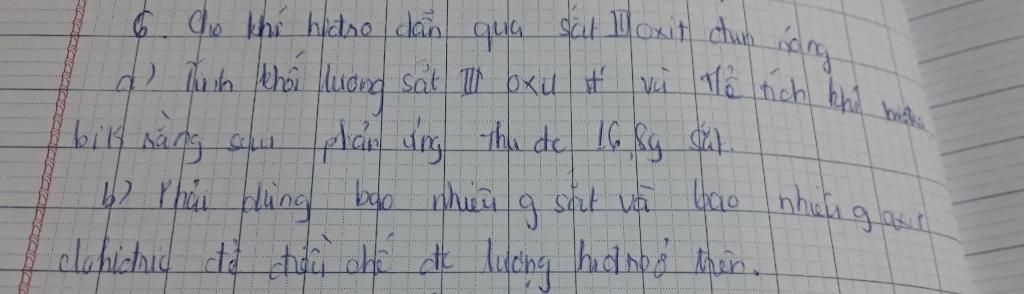 6. Cho khí hidro dẫn qua sắt III oxit đun nóng
a) Tính khối lượng sắt III oxit và thể tích khí
biết rằng sau phản ứng thu đc 16,8g sắt.
b) Phải dùng bao nhiêu g sắt và bao nhiêu g axit
clohidric để điều chế đc lượng hidro ở trên.